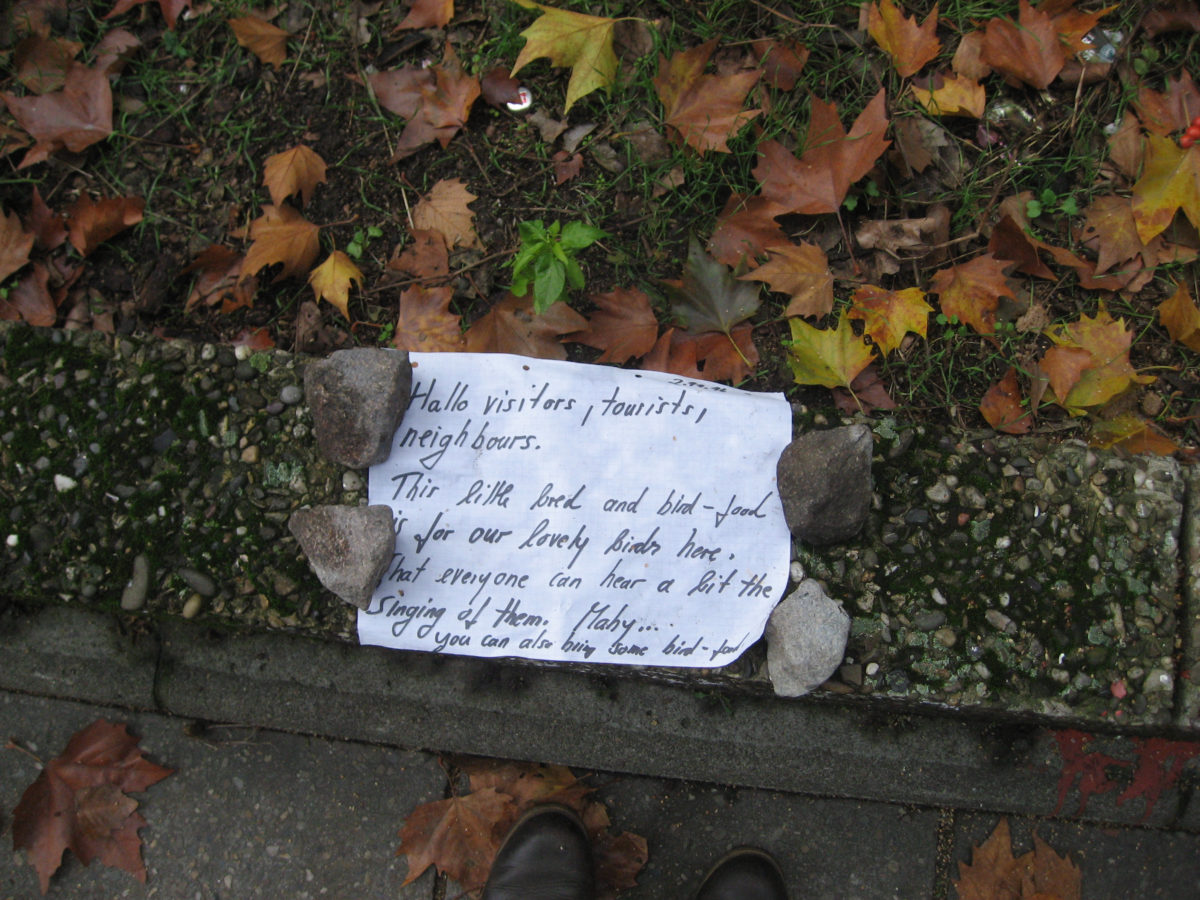 Hallo visitors, tourists,
neighbours.
This little bred and bird-food
is for our lovely birds here.
That everyone can hear a bit the
Singing of them. Maby...
you can also bring some bird-food